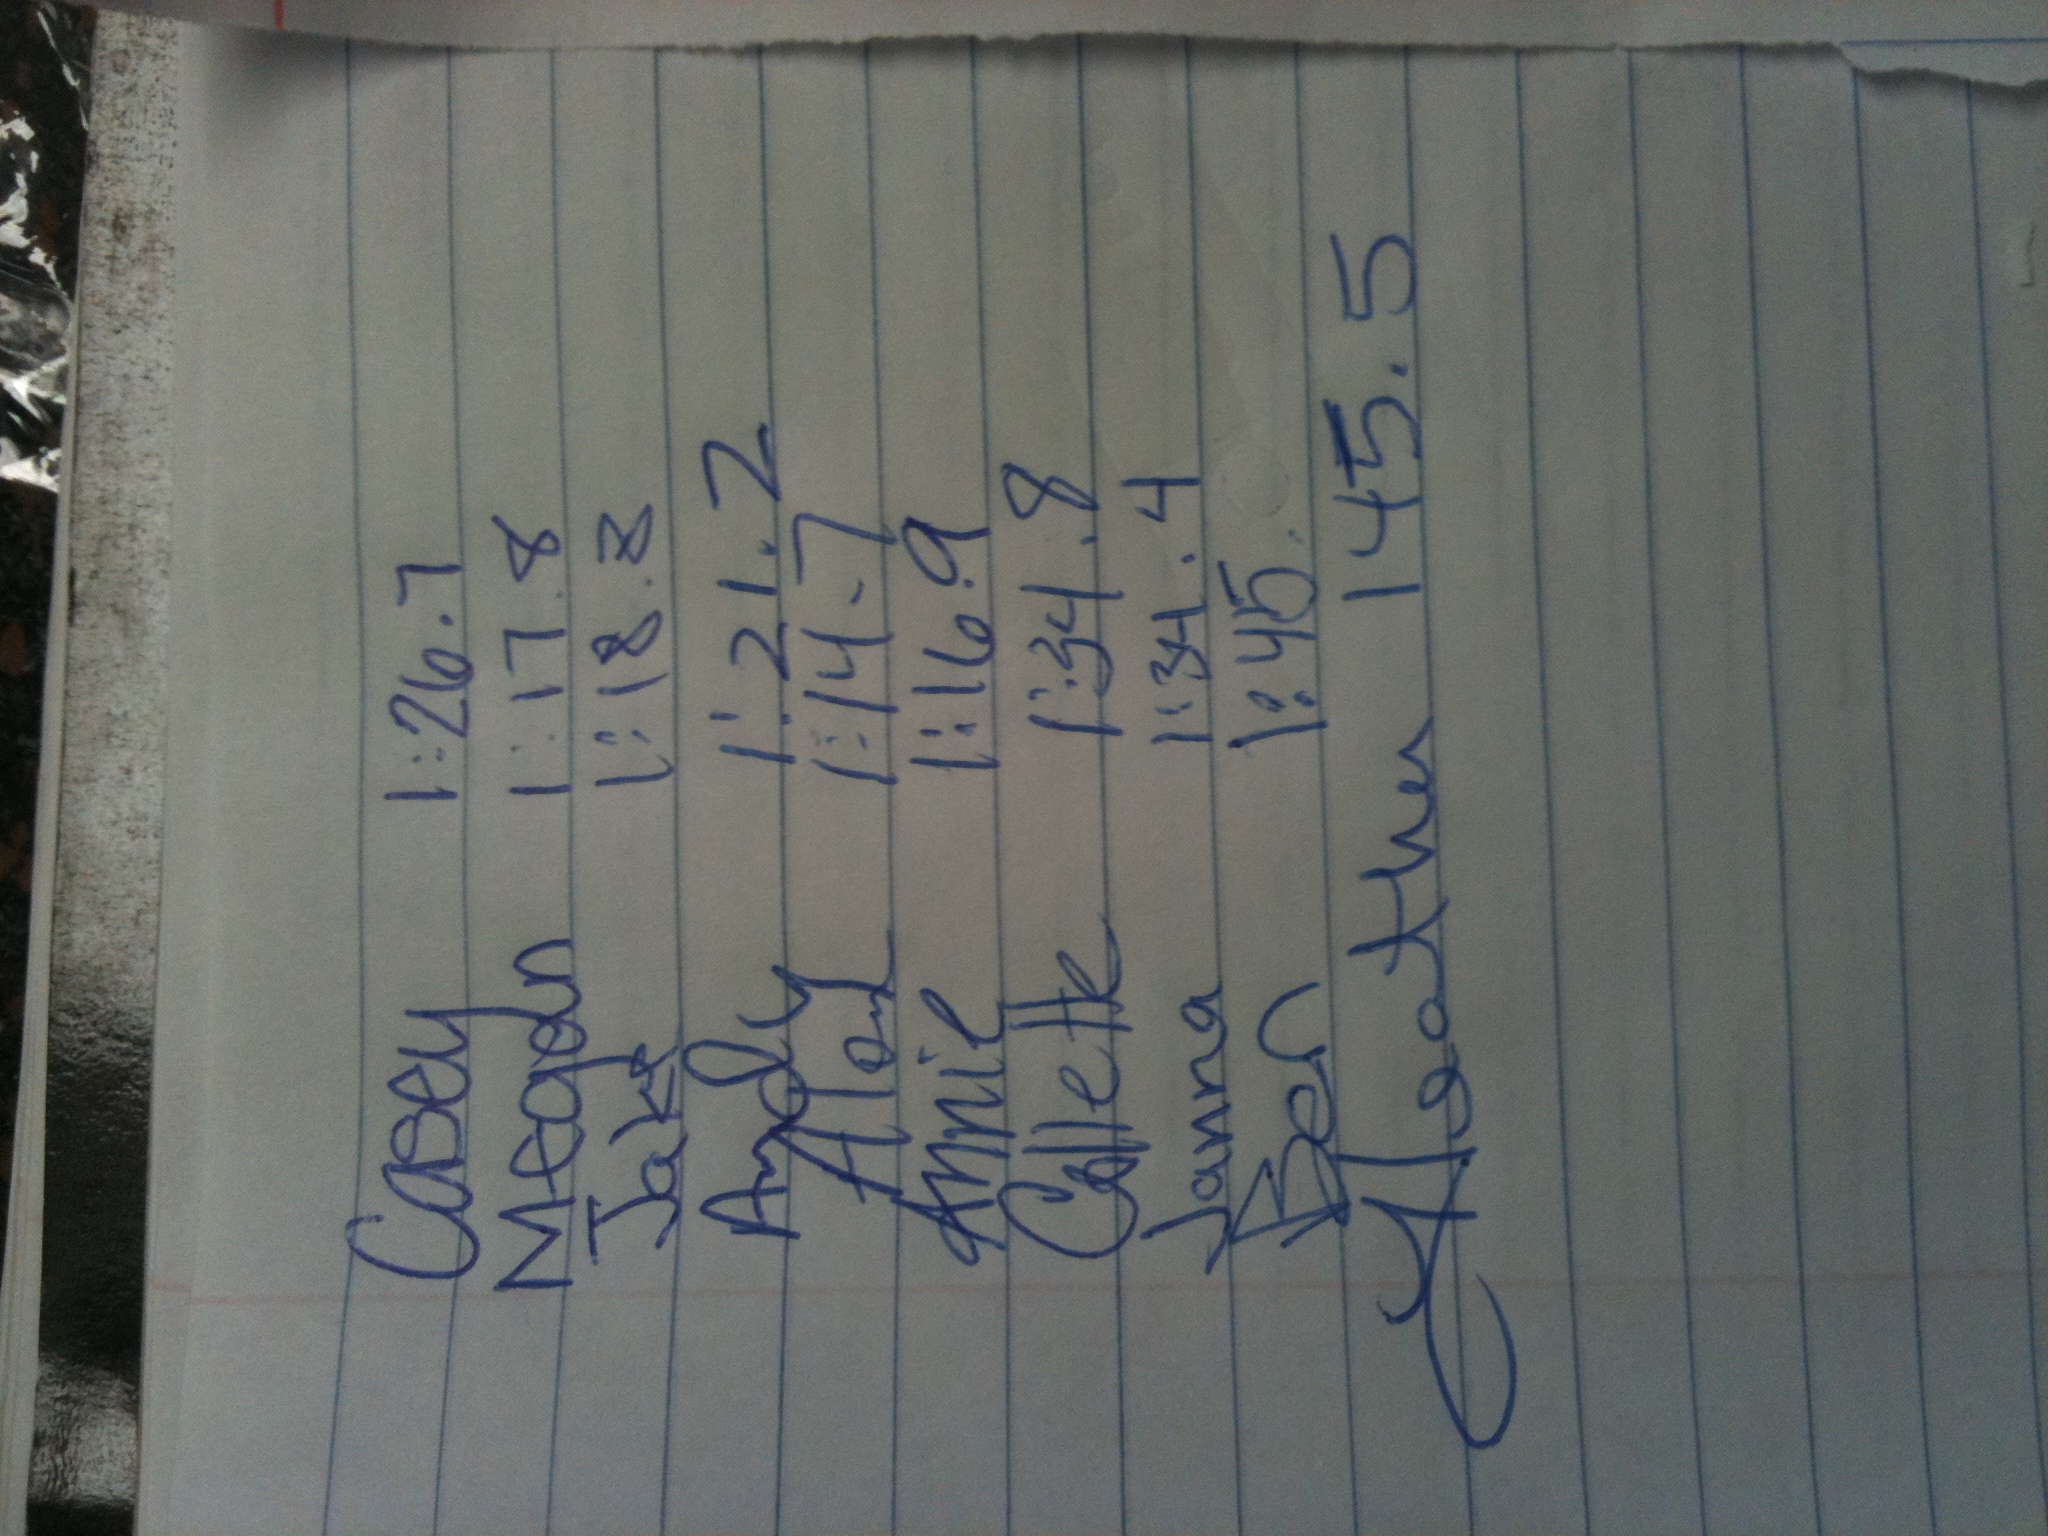 Casey 1:26.7
Megan 1:17.8
Jake 1:18.8
Andy 1:21.2
1:14.7
Annie 1:16.9
Collette 1:34.8
Janna 1:34.4
Ben 1:45.
Heather 145.5